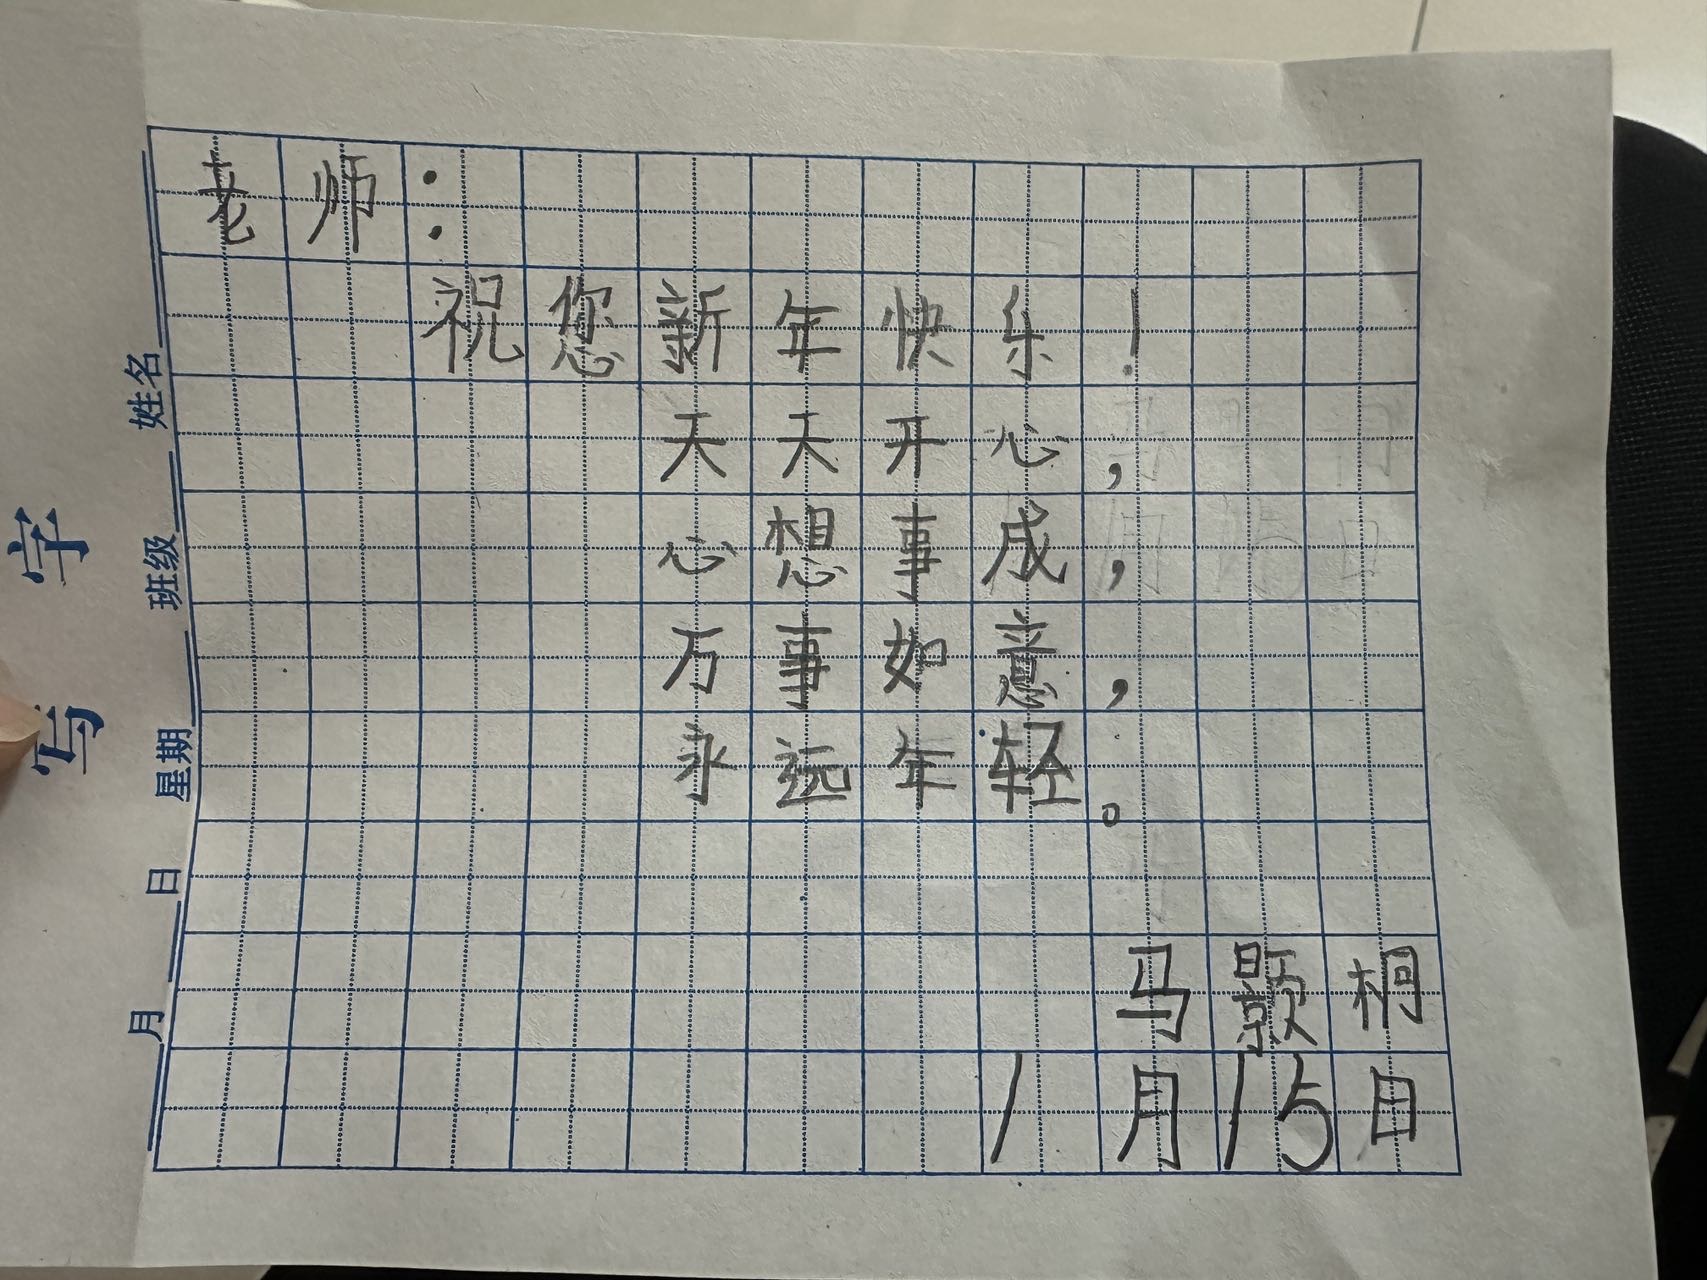 写字
月 日 星期 班级 姓名
老师：
祝您新年快乐！
天天开心，
心想事成，
万事如意，
永远年轻。
马颢桐
1月15日